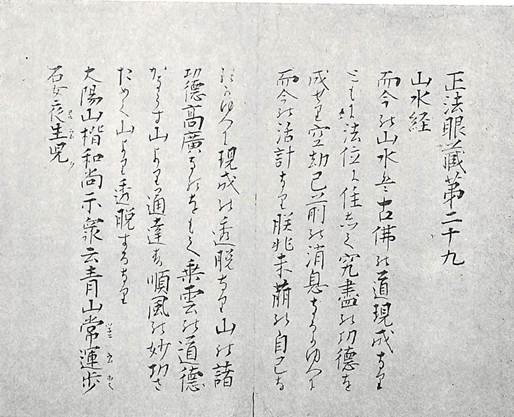 正法眼藏第二十九
山水経
而今の山水は古佛の道現成なり
ともに法位に住して究盡の功徳を
成せり空劫已前の消息なるかゆへに
而今の活計なり朕兆未萌の自己な
るかゆへに現成の透脱なり山の諸
功徳高廣なるをもて乗雲の道徳
かならす山より通達す順風の妙功さ
ためて山より透脱するなり
大陽山楷和尚示衆云青山常運歩
石女夜生児